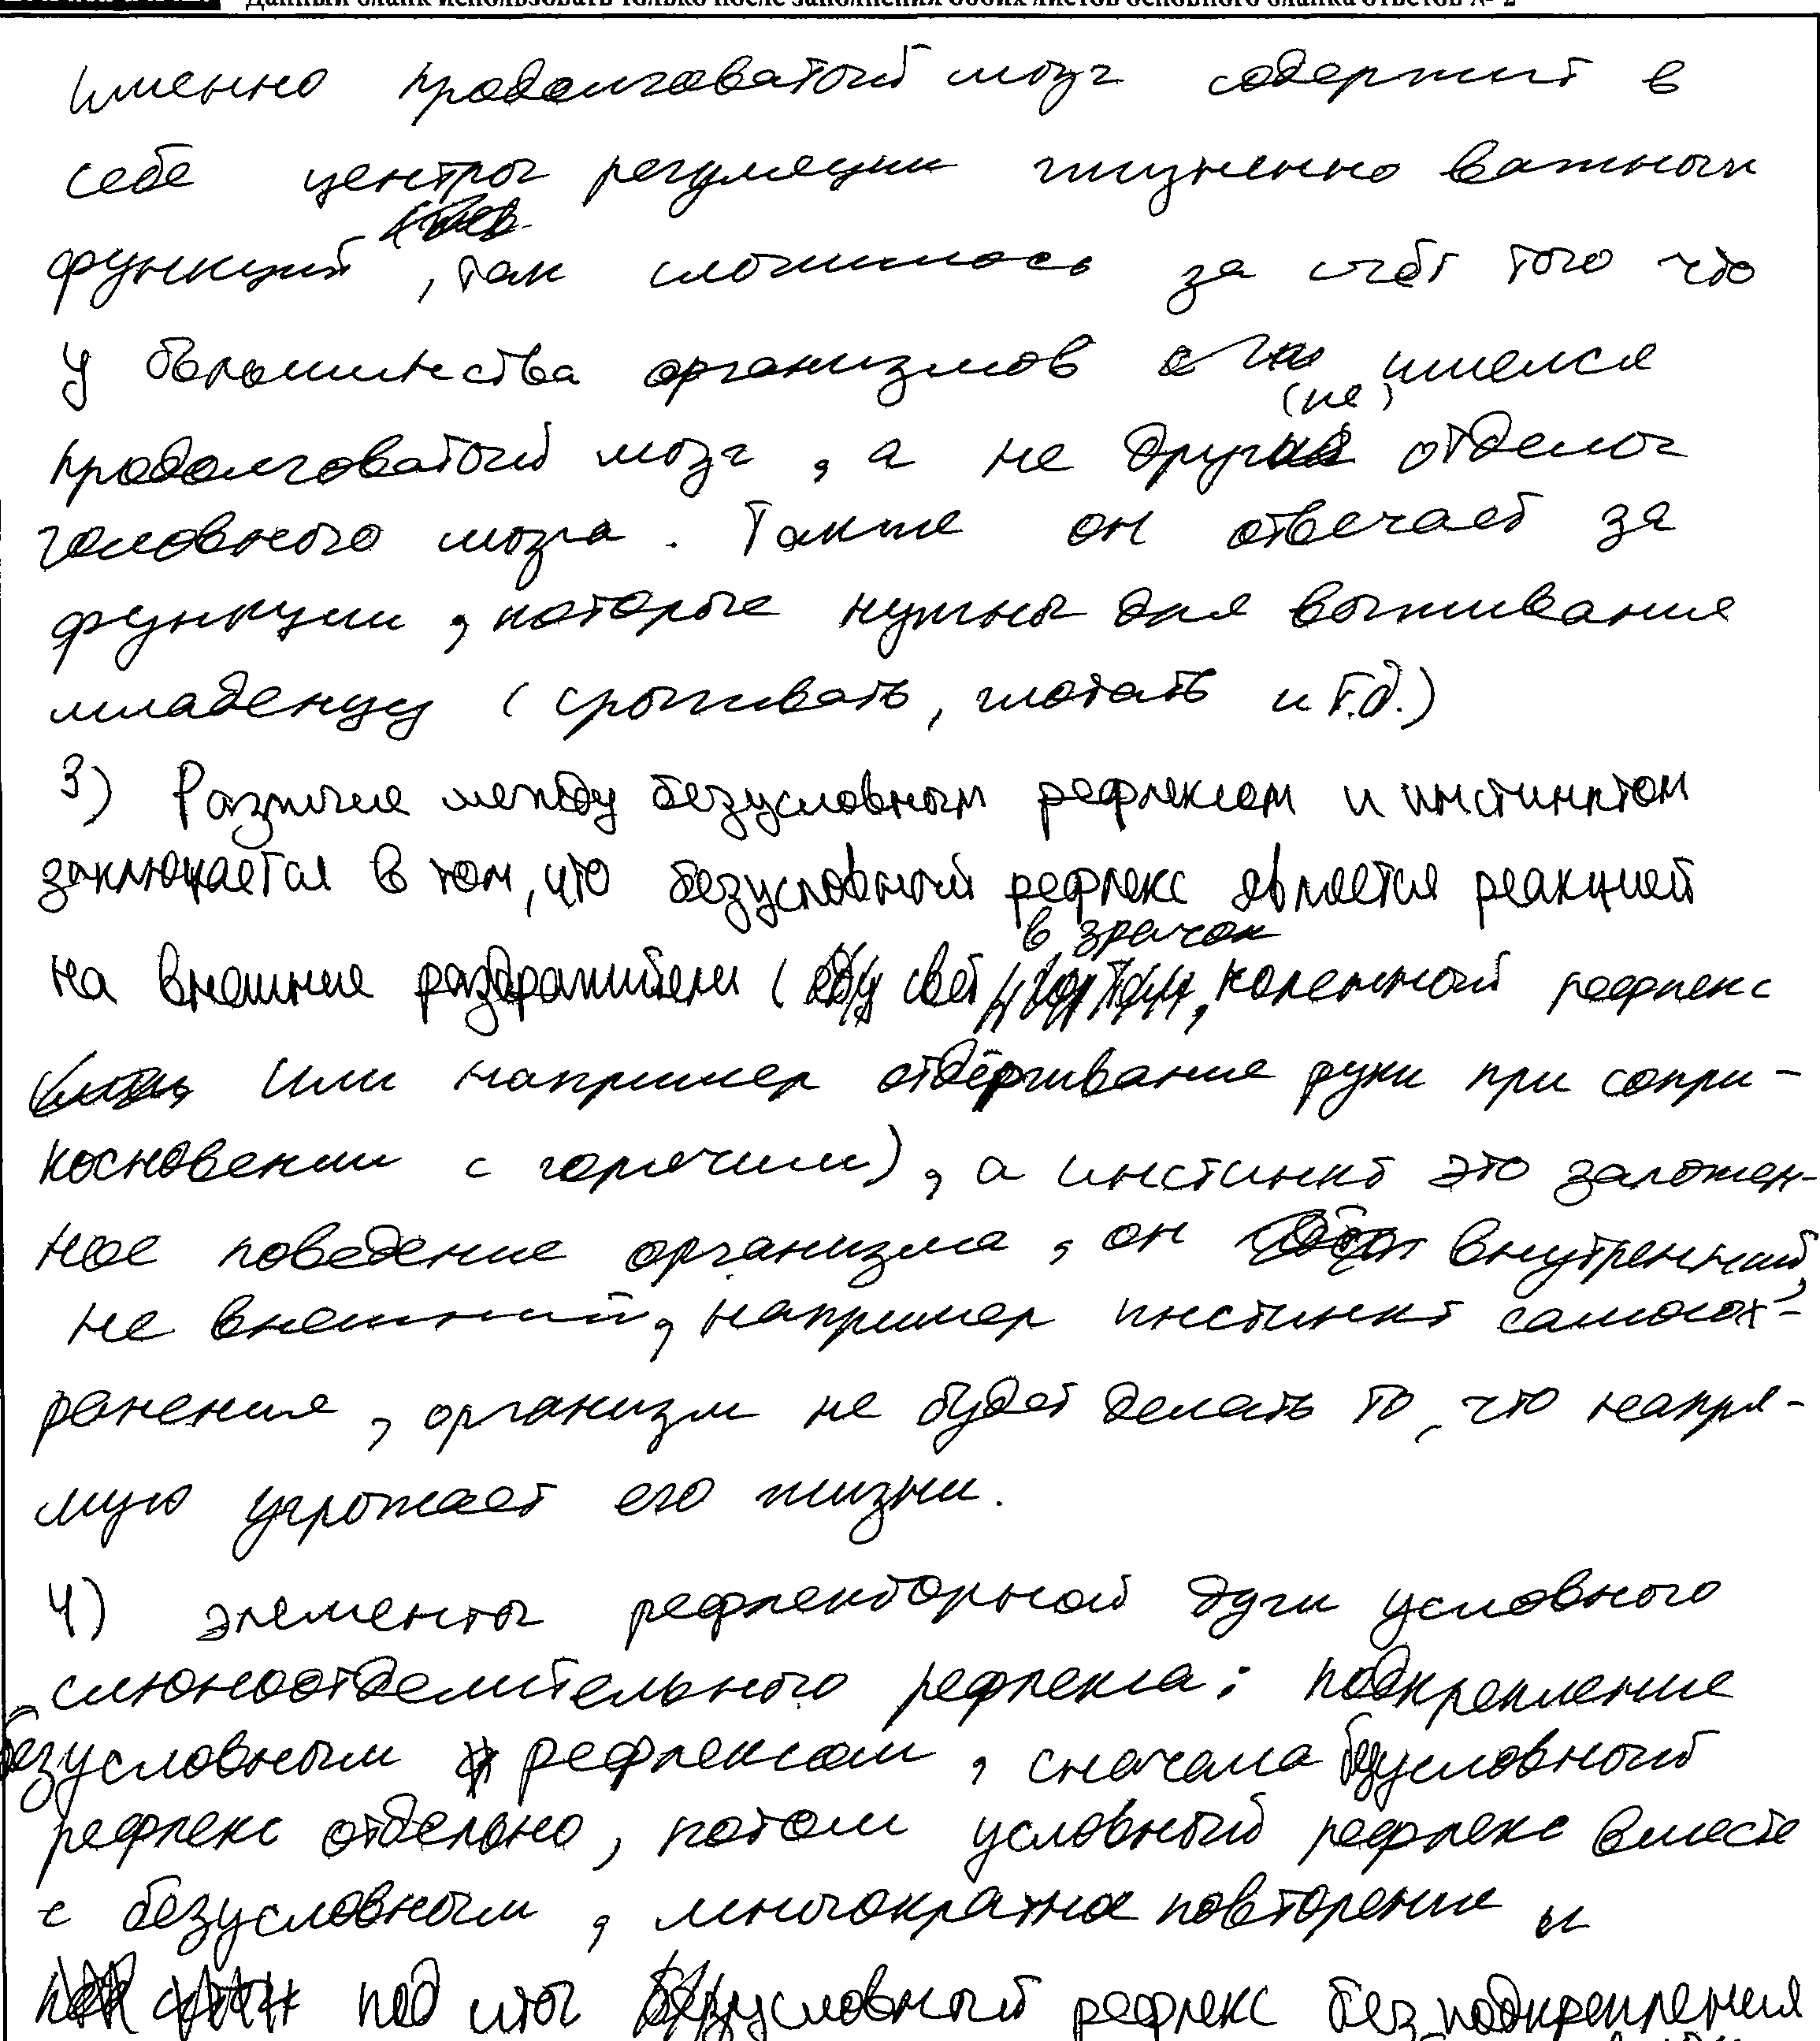 Данный бланк использовать только после заполнения обоих листов основного бланка ответов № 2
именно продолговатый мозг содержит в
себе центры регуляции жизненно важных
функций, так сложилось за счёт того что
у большинства организмов имелся
(не)
продолговатый мозг, а не другие отделы
головного мозга. Также он отвечает за
функции, которые нужны для выживания
младенцу (срыгивать, глотать и т.д.)
3) Различие между безусловным рефлексом и инстинктом
заключается в том, что безусловный рефлекс является реакцией
в зрачок
на внешние раздражители (свет, коленный рефлекс
или например отдёргивание руки при сопри-
косновении с горячим), а инстинкт это заложен-
ное поведение организма, он внутренний,
не внешний, например инстинкт самосох-
ранения, организм не будет делать то, что напря-
мую угрожает его жизни.
4) элементы рефлекторной дуги условного
слюноотделительного рефлекса: подкрепление
безусловным рефлексом, сначала безусловный
рефлекс отдельно, потом условный рефлекс вместе
с безусловным, многократное повторение и
под итог условный рефлекс без подкрепления